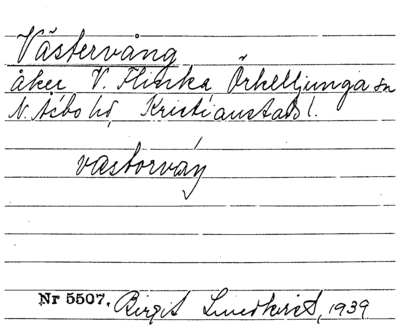 Västervång
åker V. Flinka Örkelljunga sn
N. Åsbo hd, Kristianstads l.
västorváŋ
Nr 5507. Birgit Lindkvist, 1939